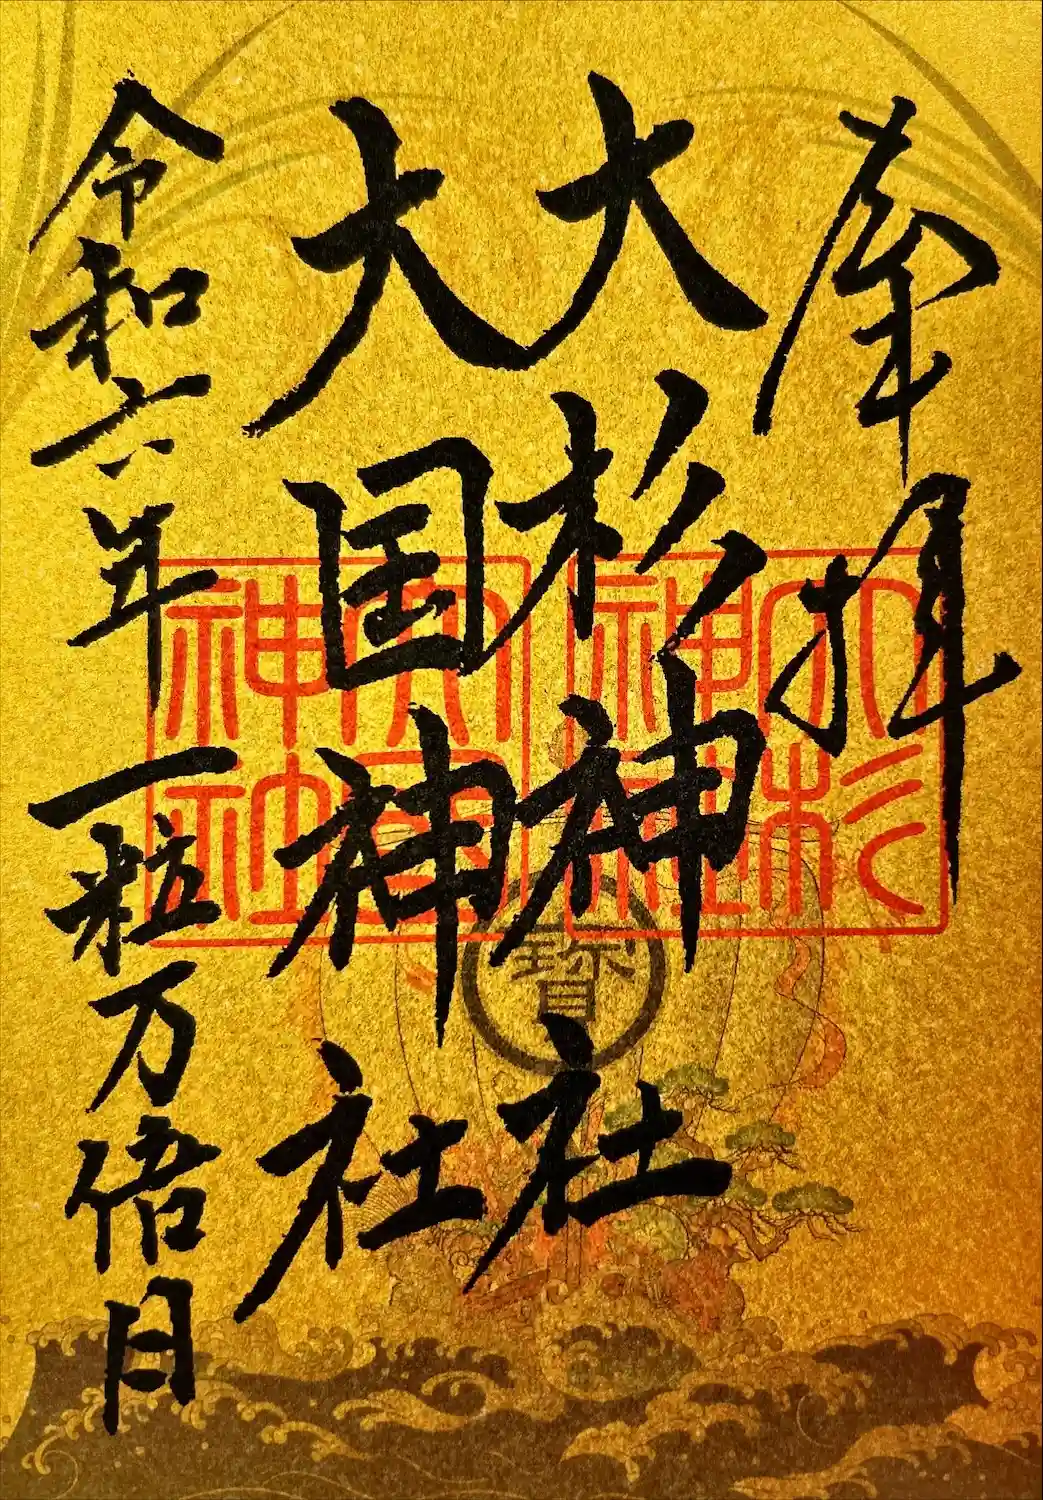 奉拝
大杉神社
大国神社
令和六年 一粒万倍日
大杉神社
大国神社
寳